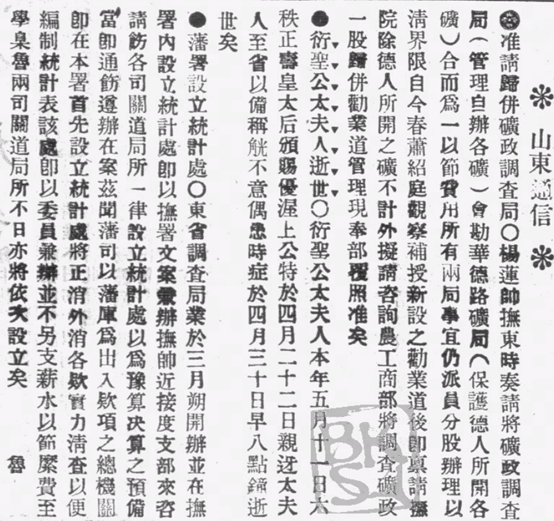 山東通信
准請歸併礦政調查局○楊蓮帥撫東時奏請將礦政調查
局(管理自辦各礦)會勘華德路礦局(保護德人所開各
礦)合而爲一以節費用所有兩局事宜仍派員分股辦理以
淸界限自今春蕭紹庭觀察補授新設之勸業道後卽稟請撫
院除德人所開之礦不計外擬請咨詢農工商部將調查礦政
一股歸併勸業道管理現奉部覆照准矣
●衍聖公太夫人逝世○衍聖公太夫人本年五月十一日六
秩正壽皇太后頒賜優渥上公特於四月二十二日親迓太夫
人至省以備稱觥不意偶患時症於四月三十日早八點鐘逝
世矣
●藩署設立統計處○東省調查局業於三月朔開辦並在撫
署內設立統計處卽以撫署文案兼辦撫帥近接度支部來咨
請飭各司關道局所一律設立統計處以爲豫算决算之預備
當卽通飭遵辦在案茲聞藩司以藩庫爲出入欵項之總機關
卽在本署首先設立統計處將正消外消各欵實力淸查以便
編制統計表該處卽以委員兼辦並不另支薪水以節縻費至
學臬魯兩司關道局所不日亦將依次設立矣 魯
BKSL